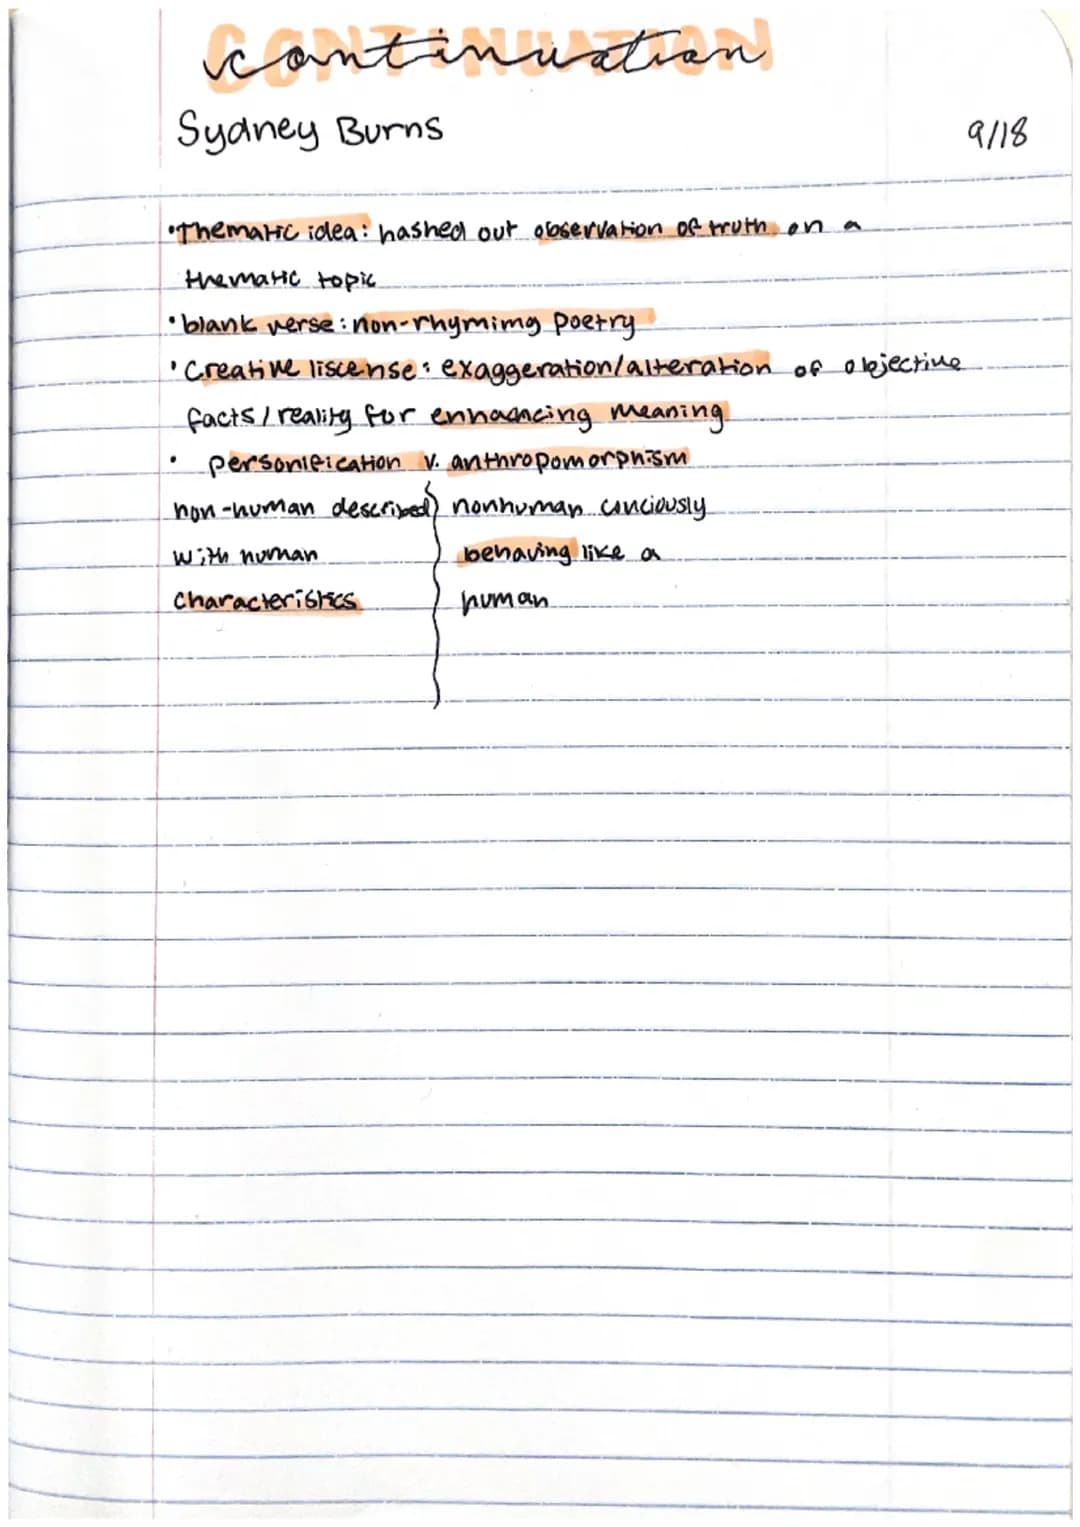 CONTINUATION
continuation
Sydney Burns 9/18
•Thematic idea: hashed out observation of truth on a
thematic topic
•blank verse: non-rhymimg poetry
•Creative liscense: exaggeration/alteration of objective
facts/reality for enhancing meaning
• personification v. anthropomorphism
non-human described nonhuman conciously
with human behaving like a
characteristics human